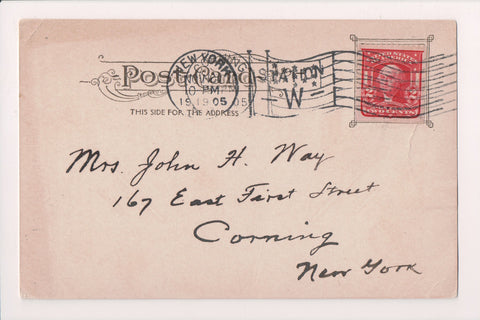 Post Card
NEW YORK,
STATION
10 PM
W
19 05
THIS SIDE FOR THE ADDRESS
TWO CENTS
Mrs. John H. Way
167 East First Street
Corning
New York